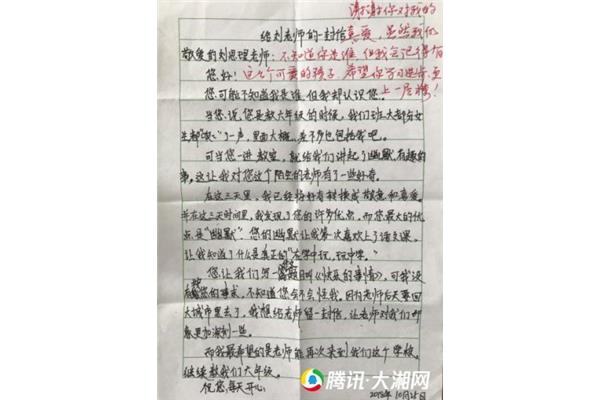 谢谢你对我的
给刘老师的一封信
喜爱,虽然我们
敬爱的刘思理老师:
不知道你是谁,但我会记得有
您好!
这么个可爱的孩子,希望你学习进步,更
您可能不知道我是谁,但我却认识您。
上一层楼!
当您说您是教六年级的时候,我们班大部分女
生都"哎~"了一声,里面大概
也包括我吧。
可当您一进教室,就给我们讲起了幽默、有趣的
事。这让我对您这个陌生的老师有了一些好奇。
在这三天里,我已经将好奇转换成敬意和喜爱。
并在这三天时间里,我发现了您的许多优点,而您最大的优
点是"幽默"。您的幽默让我第一次喜欢上了语文课。
让我知道了什么是真正的"在学中玩,玩中学。"
您让我们写一篇题目叫《快乐的事情》,可我没
有写您的事,不知道您会不会怪我。因为老师后天要回
大城市里去了,我想给老师留一封信,让老师对我们印
象更加深刻一些。
而我最希望的是老师能再次来到我们这个学校。
继续教我们六年级。
祝您每天开心!
腾讯·大湘网
2018年10月25日